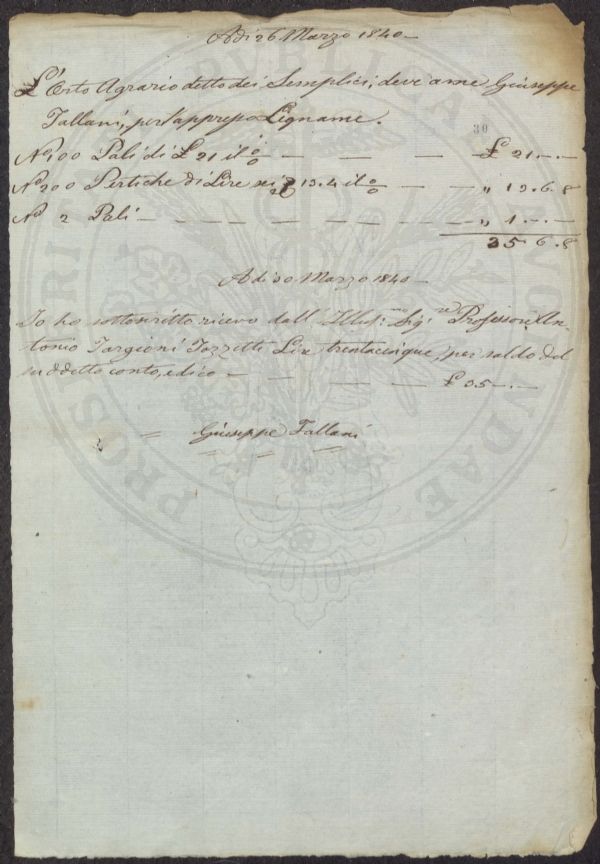 Adi 26 Marzo 1840
L'Orto Agrario detto dei Semplici, deve a me Giuseppe
Fallani, per l'appreso Legname.
30
No 100 Pali di £ 21 il % — — — £ 21.-.-
No 200 Pertiche di Lire 13.4 il % — — " 13.6.8
No 2 Pali — — — — — — " 1.-.-
35 6.8
Adi 30 Marzo 1840
Io ho sottoscritto ricevo dall' Illus:mo Sig:re Professore An-
tonio Targioni Tozzetti Lire trentacinque, per saldo del
suddetto conto, e dico — — — — — £ 35.-.-
Giuseppe Fallani
PROSPERITATI PUBLICAE PROVEHENDAE